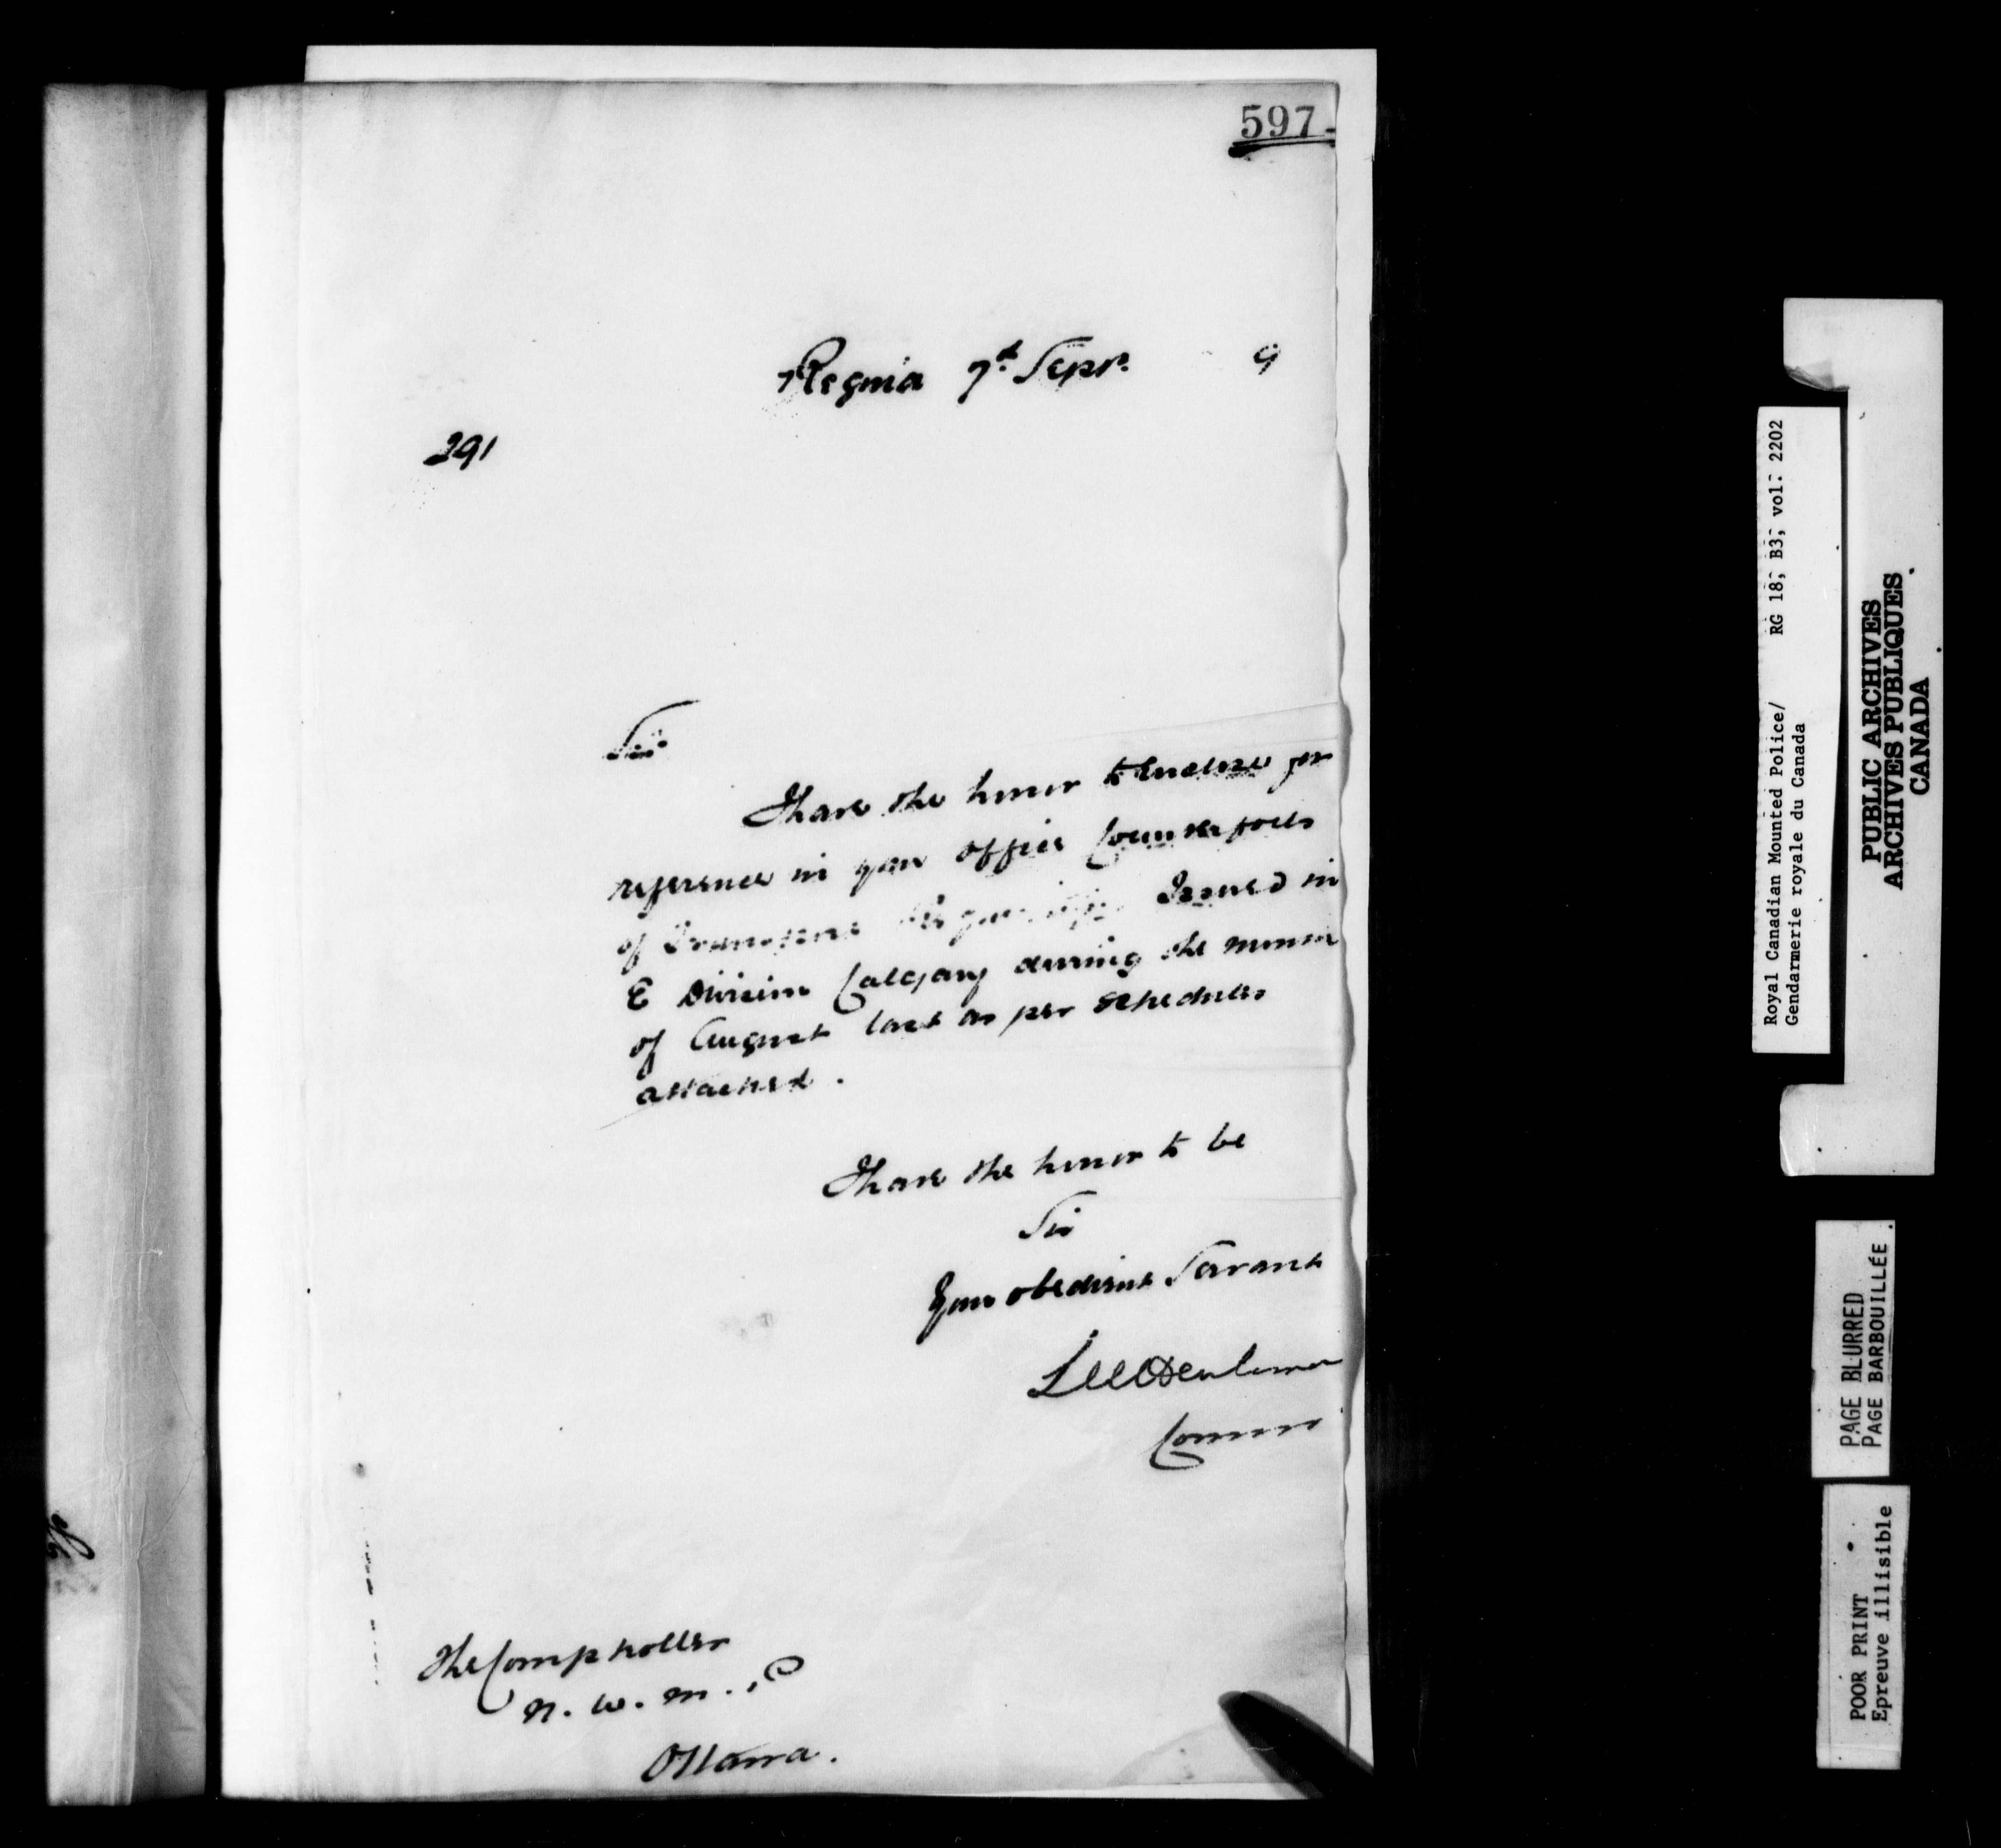 597
Regina 7th Sepr. 9
291
Sir
I have the honor to Enclose for
reference in your office Counterfoils
of Transport Requisitions Issued in
E Division Calgary during the month
of August last as per schedules
attached.
I have the honor to be
Sir
Your obedient Servant
Commr
The Comptroller
N. W. M. P
Ottawa.
Royal Canadian Mounted Police/ RG 18, B3, vol. 2202
Gendarmerie royale du Canada
PUBLIC ARCHIVES
ARCHIVES PUBLIQUES
CANADA
PAGE BLURRED
PAGE BARBOUILLÉE
POOR PRINT
Epreuve illisible